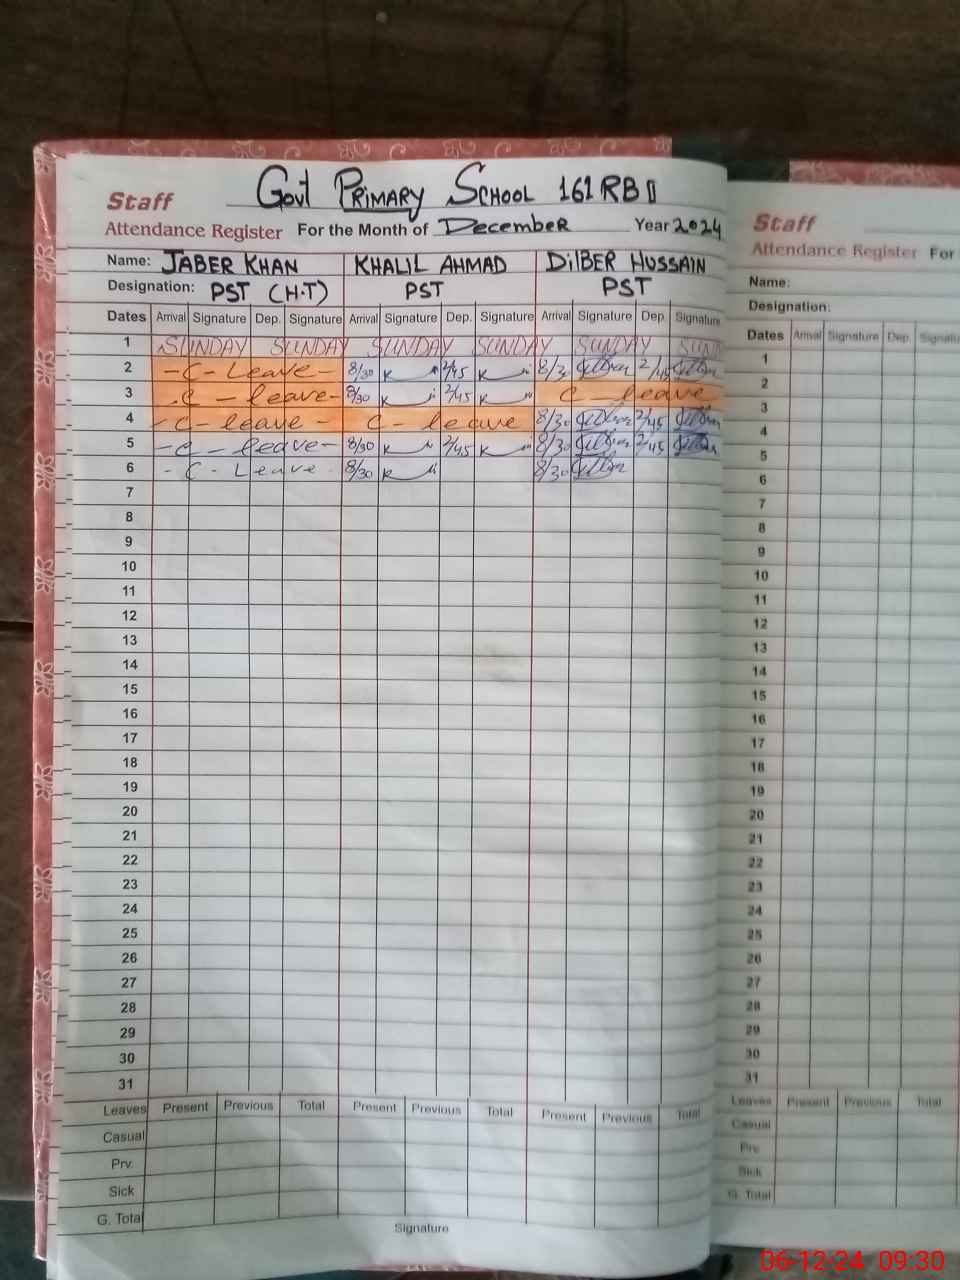 Staff Govt PRIMARY SCHOOL 161 RB
Attendance Register For the Month of December Year 2024
Name: JABER KHAN KHALIL AHMAD DilBER HUSSAIN
Designation: PST (H.T) PST PST
Dates Arrival Signature Dep. Signature Arrival Signature Dep. Signature Arrival Signature Dep Signature
1 SUNDAY SUNDAY SUNDAY SUNDAY SUNDAY SUND
2 - C - Leave - 8/30 2/45 8/30 2/45
3 C - leave - 8/30 2/45 C - leave
4 - C - leave - C - leave 8/30 2/45
5 - C - leave - 8/30 2/45 8/30 2/45
6 - C - Leave 8/30 8/30
7
8
9
10
11
12
13
14
15
16
17
18
19
20
21
22
23
24
25
26
27
28
29
30
31
Leaves Present Previous Total Present Previous Total Present Previous Total
Casual
Prv.
Sick
G. Total
Signature
Staff
Attendance Register For
Name:
Designation:
Dates Arrival Signature Dep. Signatu
1
2
3
4
5
6
7
8
9
10
11
12
13
14
15
16
17
18
19
20
21
22
23
24
25
26
27
28
29
30
31
Leaves Present Previous Total
Casual
Prv
Sick
G. Total
06-12-24 09:30